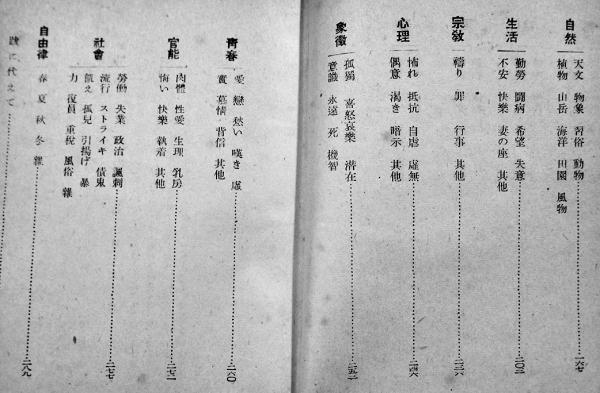 自然
天文 物象 習俗 動物
植物 山岳 海洋 田園 風物……一六七
生活
勤勞 鬪病 希望 失意
不安 快樂 妻の座 其他……二〇二
宗敎
禱り 罪 行事 其他……二三六
心理
怖れ 抵抗 自虐 虛無
偶意 渴き 暗示 其他……二四六
象徵
孤獨 喜怒哀樂 潜在
意識 永遠 死 機智……二五二
靑春
愛 戀 愁い 嘆き 虛
實 慕情 背信 其他……二六〇
官能
肉體 性愛 生理 乳房
悔い 快樂 執着 其他……二七二
社會
勞働 失業 政治 諷刺
流行 ストライキ 債鬼
飢え 孤兒 引揚げ 暴
力 復員 重稅 風俗 雜……二七七
自由律
春 夏 秋 冬 雜……二八九
跋に代えて……